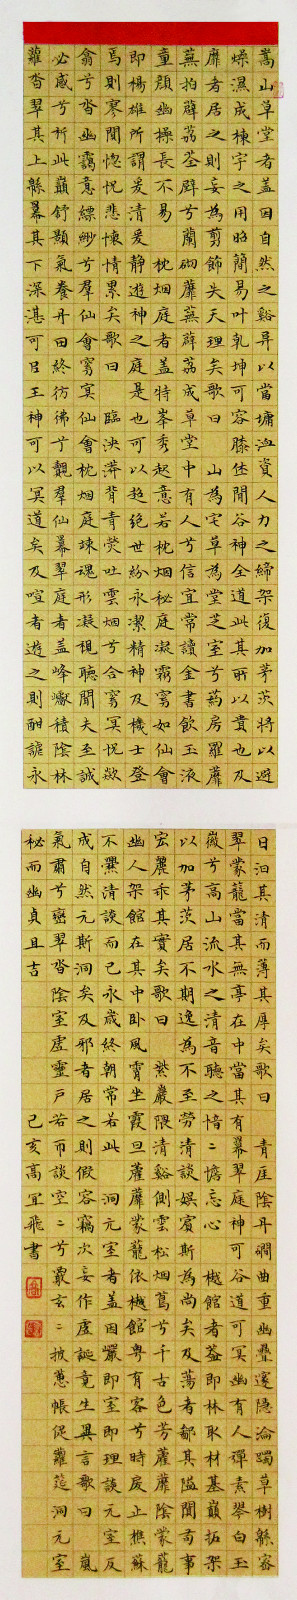 嵩山草堂者盖因自然之谿异以當墉洫資人力之締架復加茅茨將以避
燥濕成棟宇之用昭簡易叶乾坤可容膝休閒谷神全道此其所以貴也及
靡者居之則妄為剪飾失天理矣歌曰 山為宅草為堂芝室兮葯房羅蘼
蕪拍薜荔荃壁兮蘭砌蘼蕪薜荔成草堂中有人兮信宜常讀金書飲玉液
童顏幽操長不易 枕烟庭者盖特峯秀起意若枕烟秘庭凝霱窅如仙會
即楊雄所謂爰清爰静遊神之庭是也可以超絶世紛永潔精神及機士登
焉則寥閴惚怳悲懷情累矣歌曰 臨泱漭背青熒吐雲烟兮合窅冥怳欻
翕兮沓幽靄意縹緲兮羣仙會窅冥仙會枕烟庭竦魂形凝視聽聞夫至誠
必感兮祈此巔舒顥氣養丹田終彷彿兮覿羣仙冪翠庭者盖峰巘積陰林
蘿沓翠其上緜冪其下深湛可以王神可以冥道矣及喧者遊之則酣謔永
日汩其清而薄其厚矣歌曰 青厓陰丹磵曲重幽疊邃隱淪躅草樹緜冪
翠蒙籠當其無亭在中當其有冪翠庭神可谷道可冥幽有人彈素琴白玉
徽兮高山流水之清音聽之愔二憺忘心 樾館者盖即林取材基巔拓架
以加茅茨居不期逸為不至勞清談娱賓斯為尚矣及蕩者鄙其隘閴苟事
宏麗乖其實矣歌曰 紫巖隈清谿側雲松烟蔦兮千古色芳蘼蘼陰蒙籠
幽人架館在其中卧風霄坐霞旦蘿靡蒙籠依樾館粤有客兮時戾止樵蘇
不爨清談而已永歲終朝常若此 洞元室者盖因巖即室即理談元室反
成自然元斯洞矣及邪者居之則假容竊次妄作虚誕竟生異言歌曰 嵐
氣肅兮巖翠沓陰室虚靈户若帀談空二兮覈玄二披蕙帳促蘿筵洞元室
秘而幽貞且吉
己亥高宜飛書